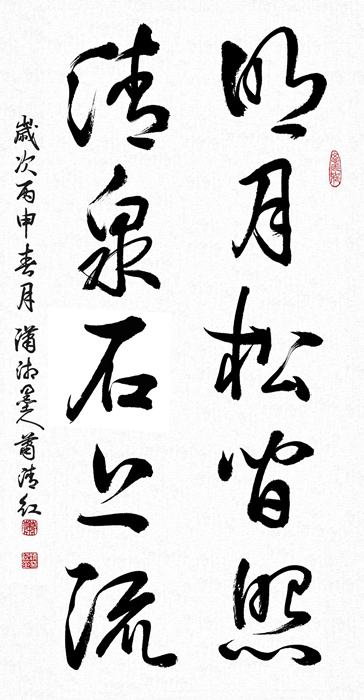 明月松间照
清泉石上流
歲次丙申春月潇湘墨人萧清红